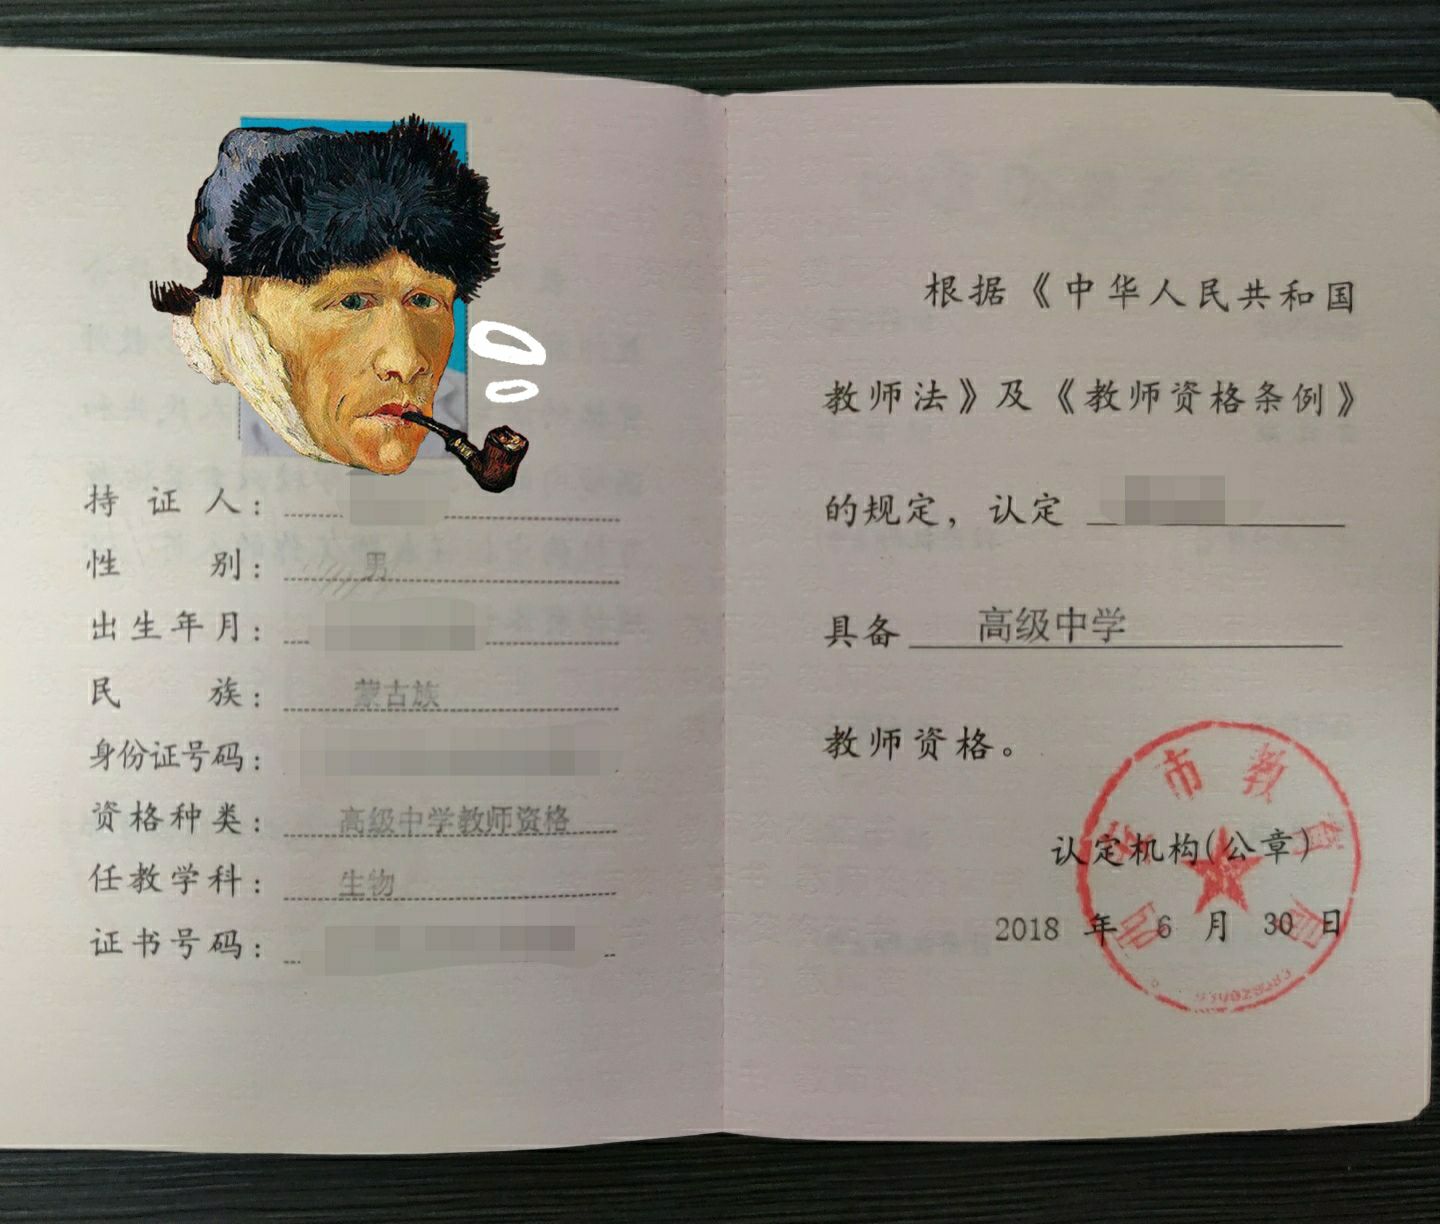 持证人：
性别：男
出生年月：
民族：蒙古族
身份证号码：
资格种类：高级中学教师资格
任教学科：生物
证书号码：
根据《中华人民共和国
教师法》及《教师资格条例》
的规定，认定
具备 高级中学
教师资格。
市教育局
认定机构(公章)
2018 年 6 月 30 日